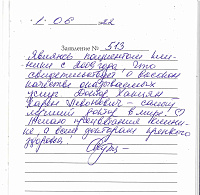 1.06 22
Заявление № 513
Являюсь пациентом кли-
ники с 2012 года, что
свидетельствует о высоком
качестве оказываемых
услуг. Доктор Ханиян
Карен Левонович – самый
лучший доктор в мире ♡
Желаю процветания клини-
ке, а всем докторам крепкого
здоровья!